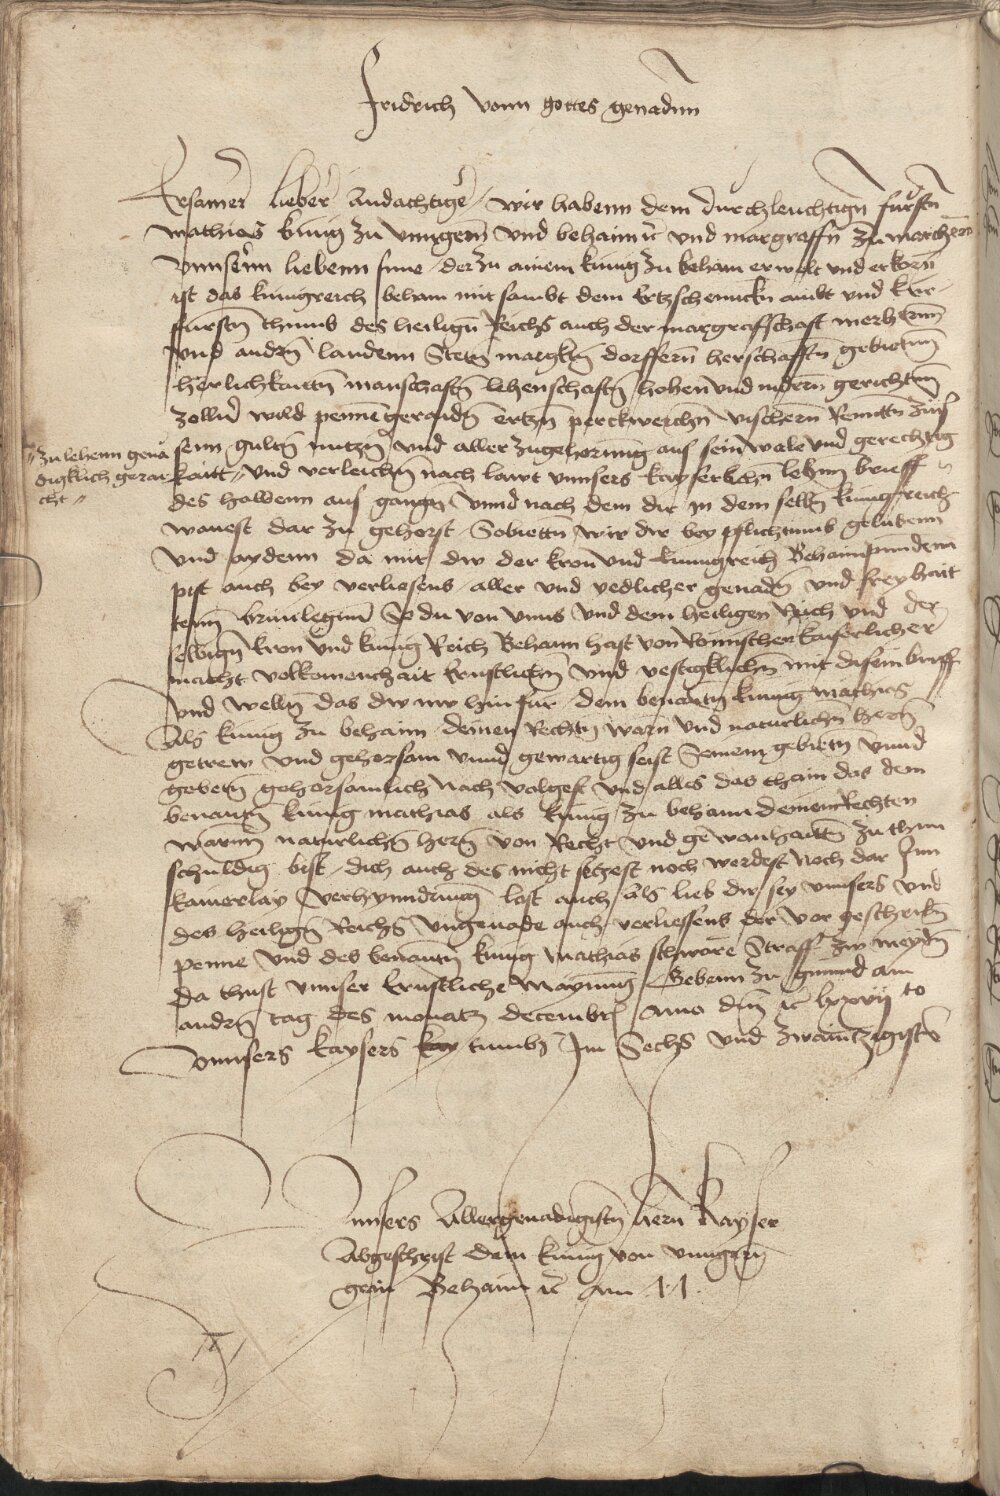 Fridrich vonn gottes genadnn
Ersamer lieber Andachtiger / wir habenn dem durchleuchtign fursten
mathias kunig zu vnngern vnd behaim ꝛc vnd margraffn zu marchern
vnnsernn liebenn sune / der zu ainem kunig zu beham erwelt vnd erkorn
ist das kunigreich beham mit sambt dem Ertzschennckn ambt vnd kur
furstn thumb des heilign Reichs auch der margrafschaft merhernn
vnd andrn landenn Stetn margktn dorffern herschafftn gebietnn
herlichkaittn manschaftn lehenschaftn hohen vnd nidern gerichtnn
Zolln wild pennen geraudn ertzn perckwerchn vischern Renntn Zins
senn gultn nutzn vnd aller zugehorung aus sein wale vnd gerechtig
kaitt / vnd verleichn nach lawt vnnsers kayserlichn lehnn brieff
"zu lehenn gena
digklich gerai
cht"
des halbenn aus gangn vnnd nach dem dir in dem selbn kungreich
wonest dar zu gehorst / Gebietn wir dir bey pflichtumb gelubenn
vnd aydenn da mit dw der kron vnd kunigreich Behaim pundenn
pist auch bey verliesens aller vnd yedlicher genadn vnd freyhait
tenn briuilegium So du von vnns vnd dem heiligen Reich vnd der
selbign kron vnd kunig Reich Behaim hast von Romischen kaiserlicher
macht volkomenhait Ernstlichn vnd vestigklichn mit disem brieff
vnd welln das dw nw hin fur / dem benantn kunig mathias
Als kunig zu behaim deinen Rechtn warn vnd naturlichn hern
getrew vnd gehorsam vnnd gewartig seist Seinem gebietn vnnd
gebetn gehorsamlich nach volgest vnd alles das thain das dem
benantn kunig mathias als kunig zu behaim deinem Rechten
warnn naturlichn hern von Recht vnd gewonhaittn zu thun
schuldig bist / dich auch des nicht setzest noch werdest noch dar Inn
kainerlay verhynndrung last auch als lieb dir sey vnnsers vnd
des heilign Reichs vngenade auch verliessens der vor geschribn
penne vnd des benantn kunig mathias schwäre Straff zw meydn
da thust vnnser Ernstliche maynung Gebenn zu gmund am
andrn tag des monatz decembris Anno dni ꝛc lxxvij to
vnnsers kaysers kay tumbs Im Sechs vnd zwaintzigistn
vnnsers Allergenadigistn hern Kayser
Abgeschrift dem kunig von vnngern
gein Behaim ꝛc Am 11